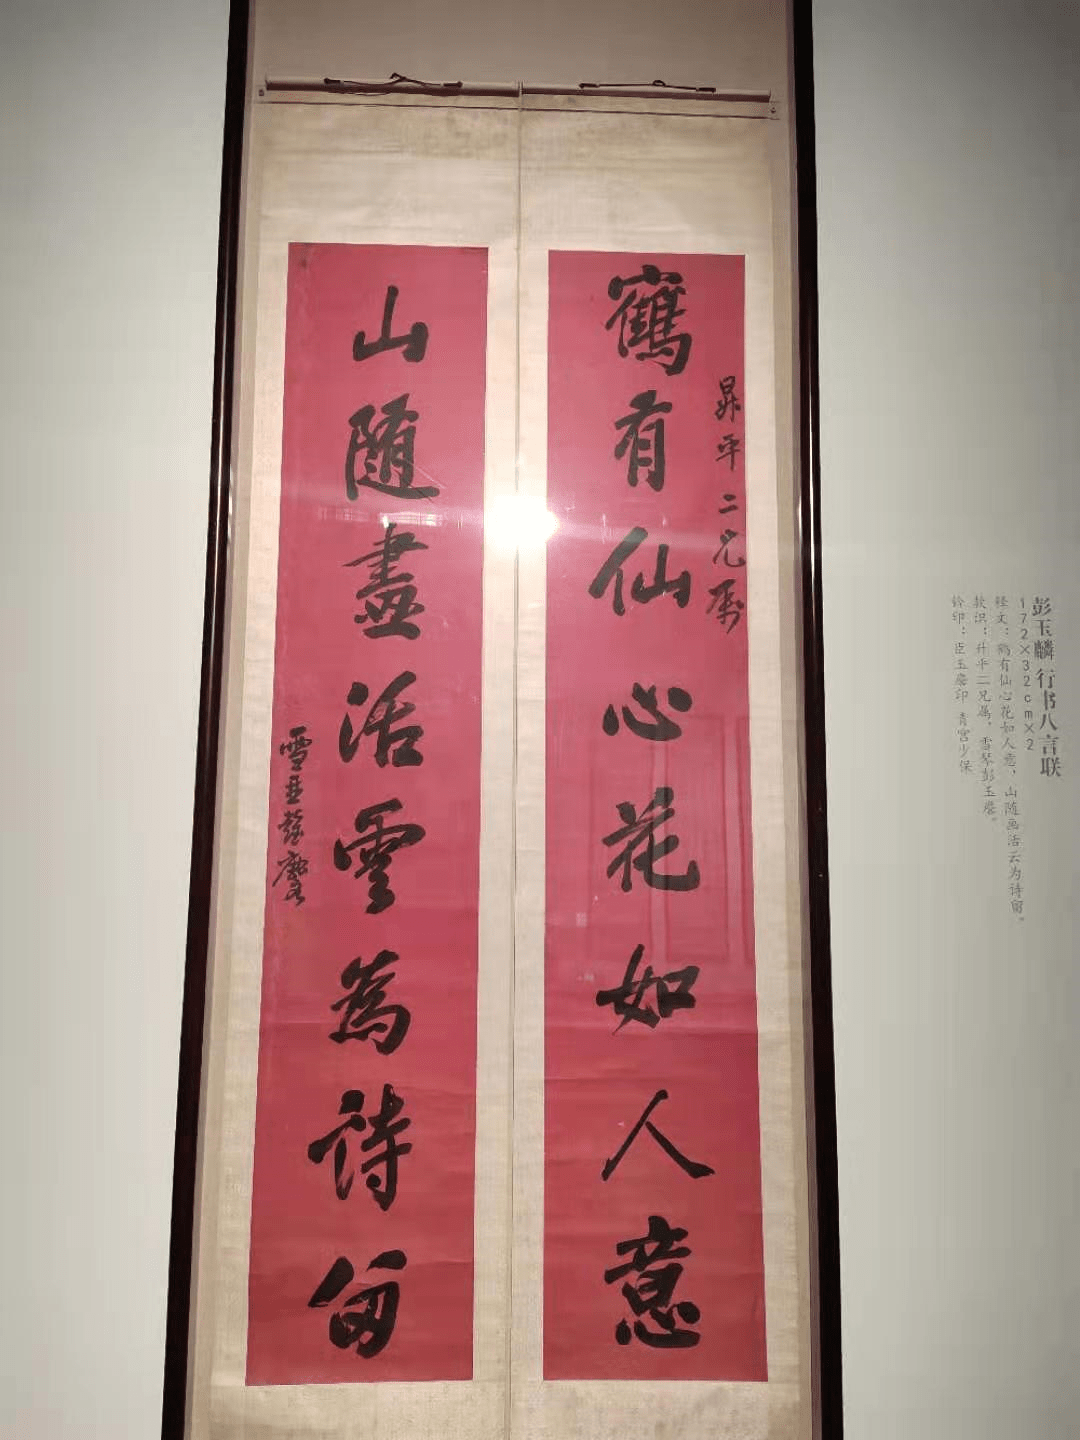 鶴有仙心花如人意
昇平二兄属
山随畫活雲為詩留
雪琴彭玉麐
彭玉麟 行书八言联
172×32cm×2
释文：鹤有仙心花如人意，山随画活云为诗留。
款识：升平二兄属，雪琴彭玉麐。
钤印：臣玉麐印 青宫少保